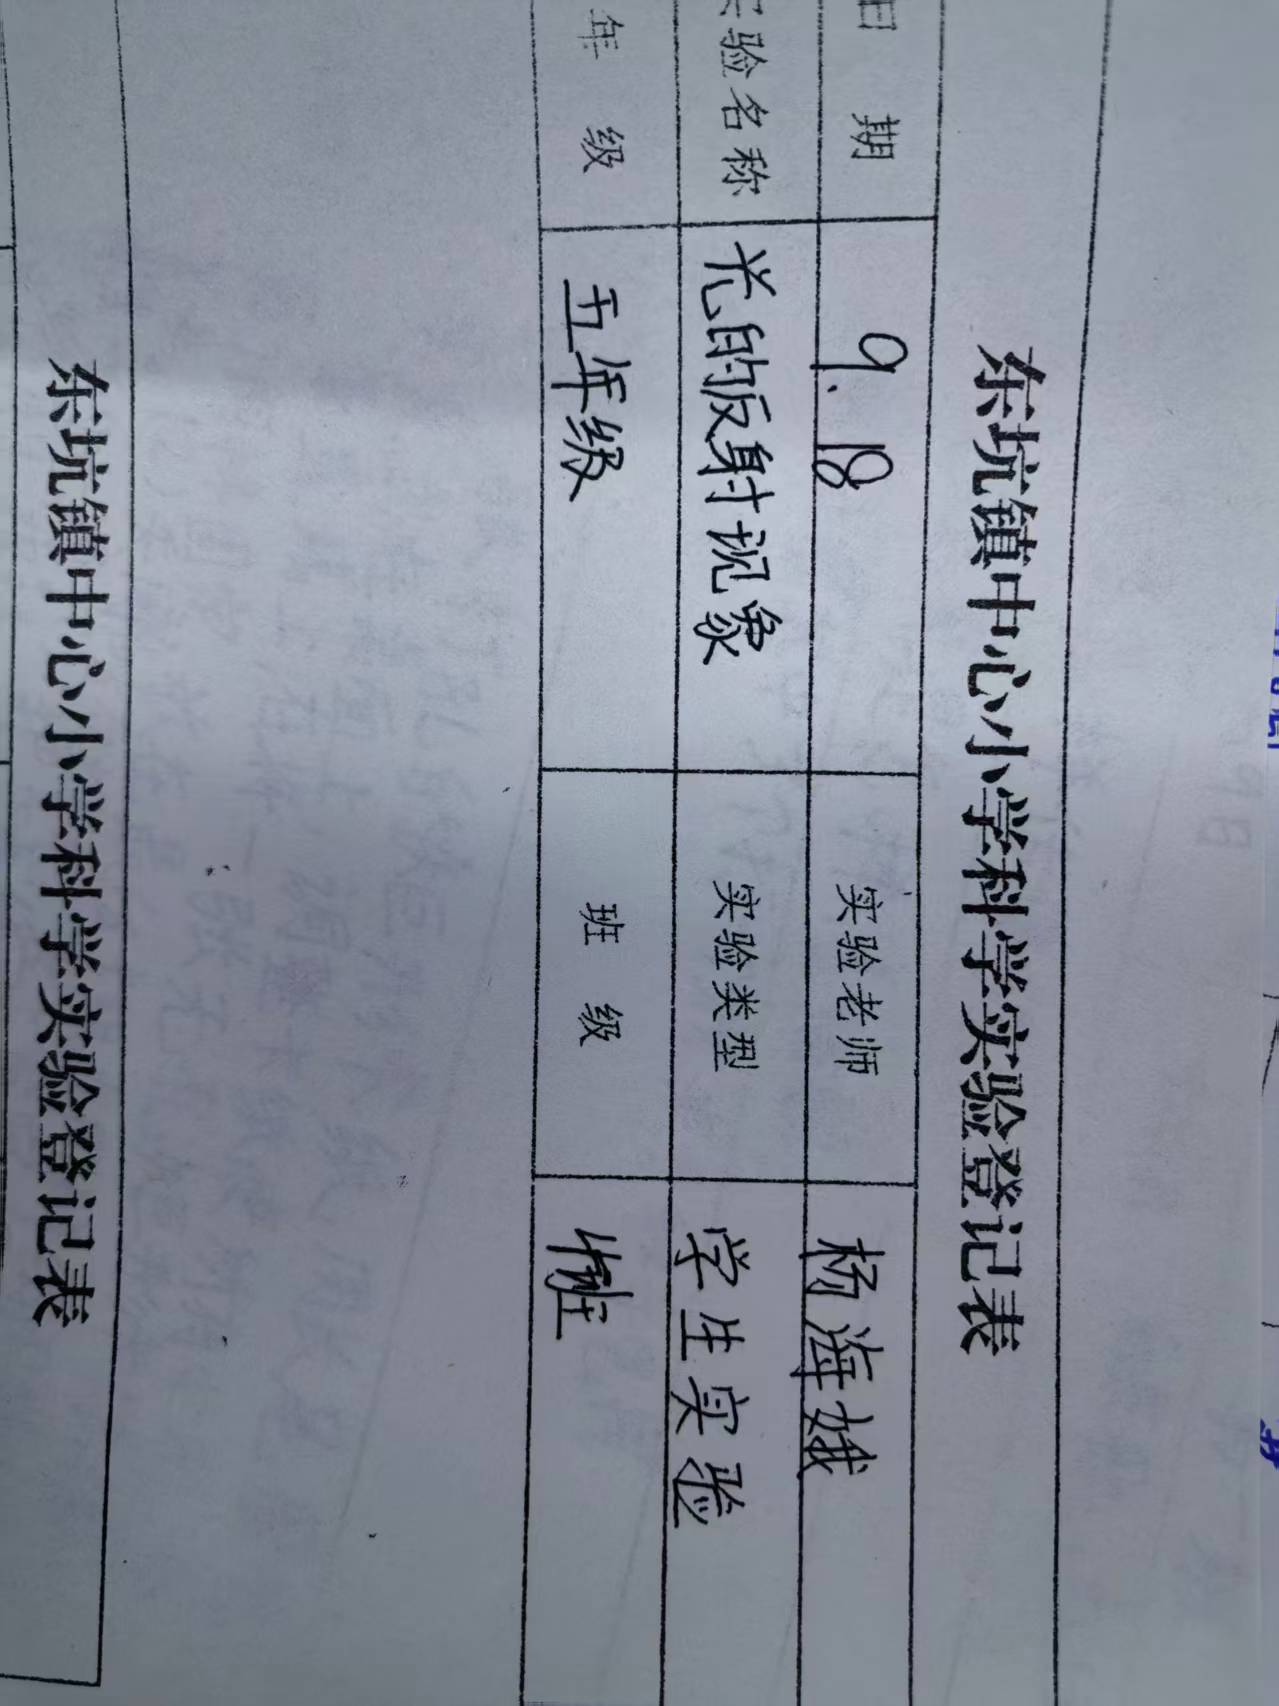 东坑镇中心小学科学实验登记表
日 期 9.18 实验老师 杨海娥
实验名称 光的反射现象 实验类型 学生实验
年 级 五年级 班 级
东坑镇中心小学科学实验登记表